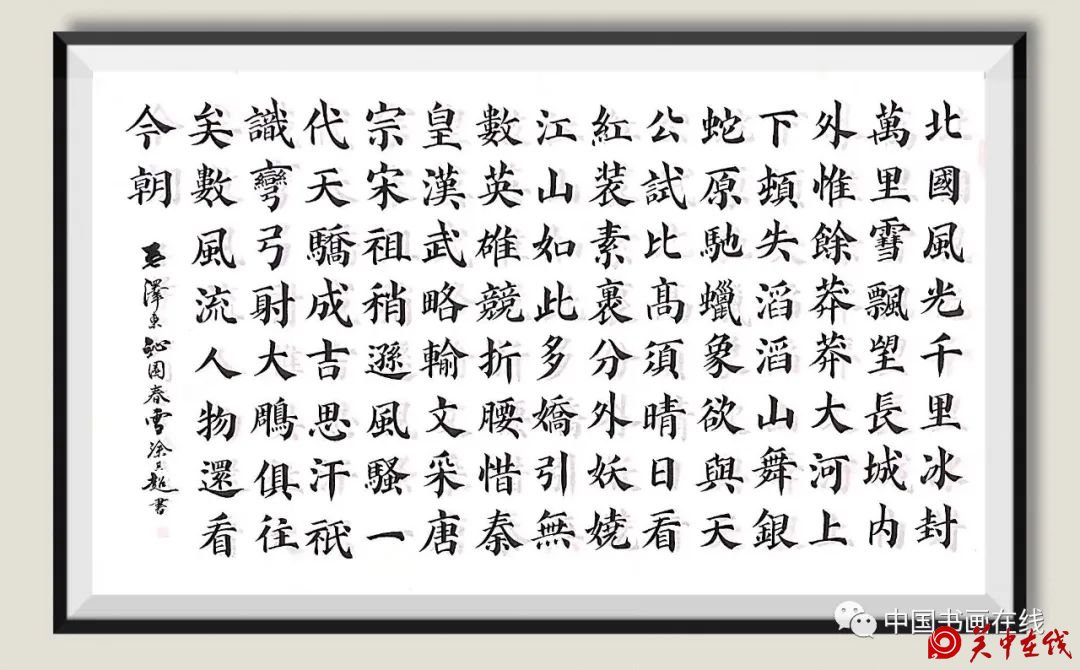 北國風光千里冰封
萬里雪飄望長城内
外惟餘莽莽大河上
下頓失滔滔山舞銀
蛇原馳蠟象欲與天
公試比髙須晴日看
紅装素裹分外妖嬈
江山如此多嬌引無
數英雄競折腰惜秦
皇漢武略輸文采唐
宗宋祖稍遜風騷一
代天驕成吉思汗祇
識彎弓射大鵰俱往
矣數風流人物還看
今朝
毛澤東沁園春雪徐超書
中国书画在线
关中在线